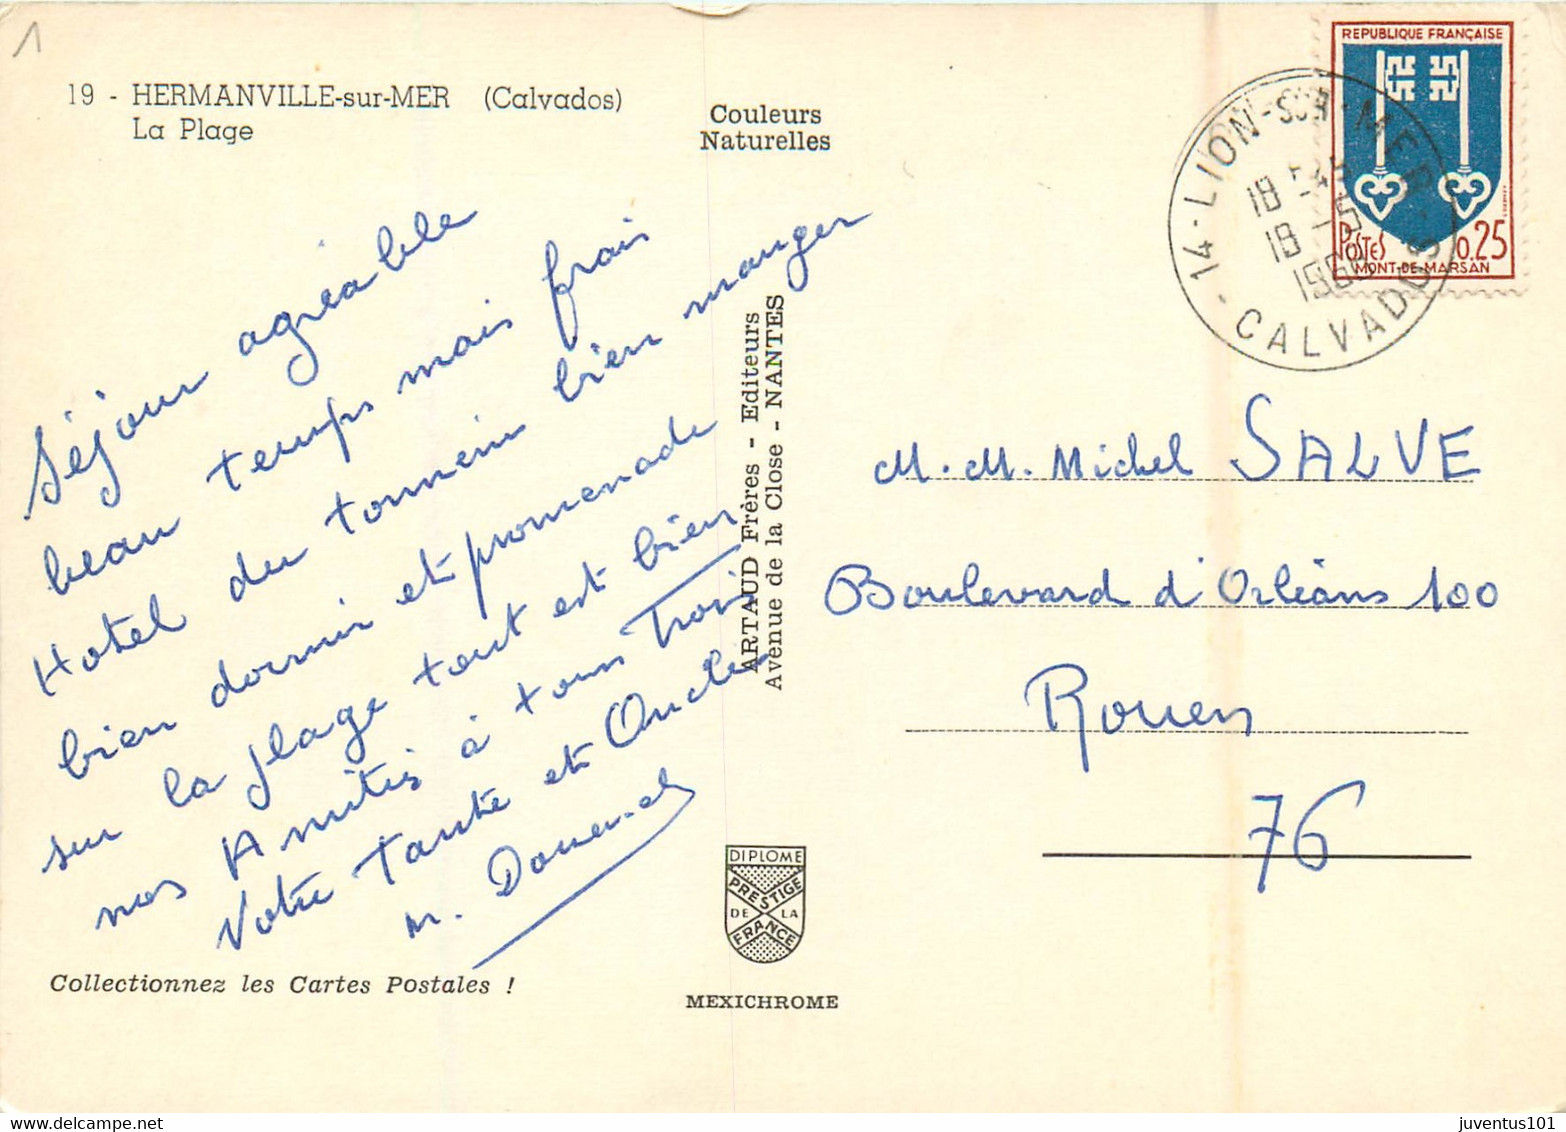 1
19 - HERMANVILLE-sur-MER (Calvados)
La Plage
Couleurs
Naturelles
REPUBLIQUE FRANÇAISE
POSTES 0.25
MONT-DE-MARSAN
14 - LION-SUR-MER
18 H
18 -5
CALVADOS
Séjour agréable
beau temps mais frais
Hotel du tonnerre bien manger
bien dormir et promenade
sur la plage tout est bien
nos Amitiés à tous Trois
Votre Tante et Oncle
M.
ARTAUD Frères - Editeurs
Avenue de la Close - NANTES
M. M. Michel SALVE
Boulevard d'Orléans 100
Rouen
76
DIPLOME
PRESTIGE
DE LA
FRANCE
Collectionnez les Cartes Postales !
MEXICHROME
juventus101